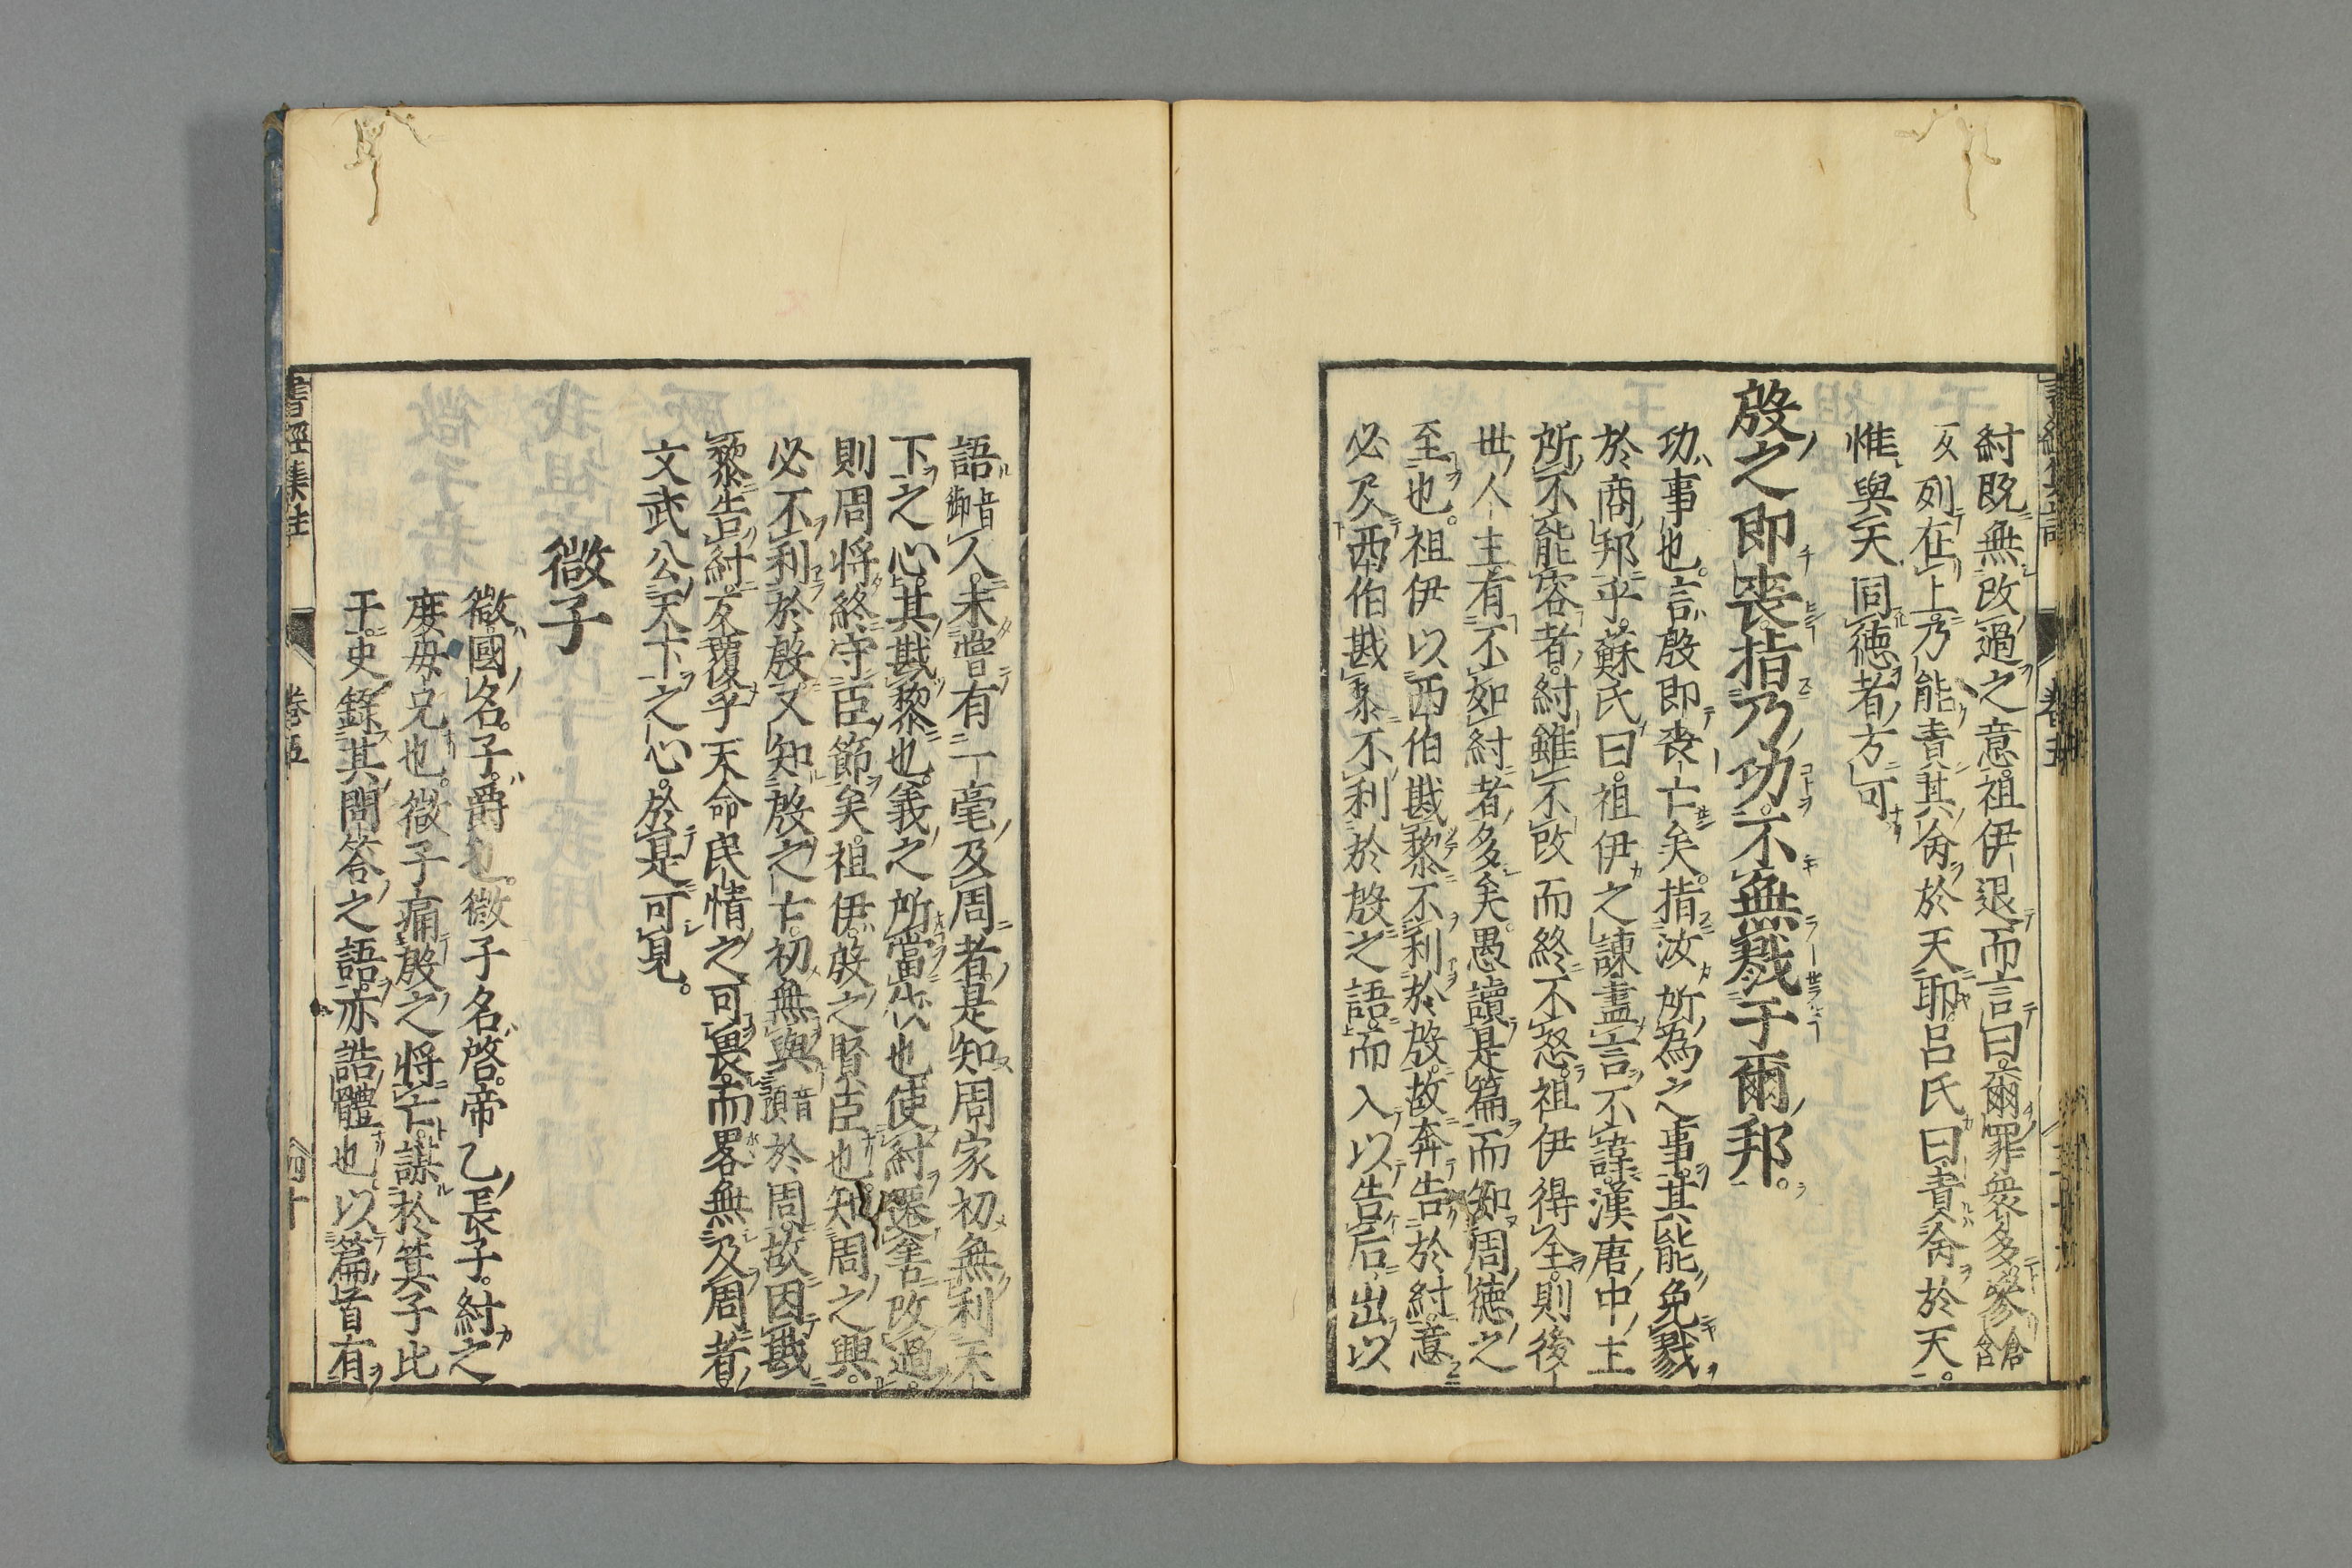 紂既無改過之意祖伊退而言曰爾罪衆多參倉含
反列在上乃能責其命於天耶呂氏曰責命於天。
惟與天同德者方可
殷之即喪指乃功不無戮于爾邦。
功事也。言殷即喪亡矣。指汝所爲之事其能免戮
於商邦乎。蘇氏曰。祖伊之諫盡言不諱。漢唐中主
所不能容者。紂雖不改而終不怒。祖伊得全。則後
世人主有不如紂者多矣。愚讀是篇而知周德之
至也。祖伊以西伯戡黎不利於殷。故奔告於紂。意
必及西伯戡黎不利於殷之語。而入以告后出以
語音御人未嘗有一毫及周者。是知周家初無利天
下之心。其戡黎也。義之所當伐也使紂遷善改過。
則周將終守臣節矣。祖伊。殷之賢臣也。知周之興。
必不利於殷又知殷之亡。初無與音預於周。故因戡
黎告紂。反覆乎天命民情之可畏。而畧無及周者。
文武公天下之心。於是可見。
微子
微。國名。子。爵也。微子名啓。帝乙長子。紂之
庶母兄也。微子痛殷之將亡。謀於箕子比
干。史錄其問答之語。亦誥體也。以篇首有
書經集註
卷五
四十